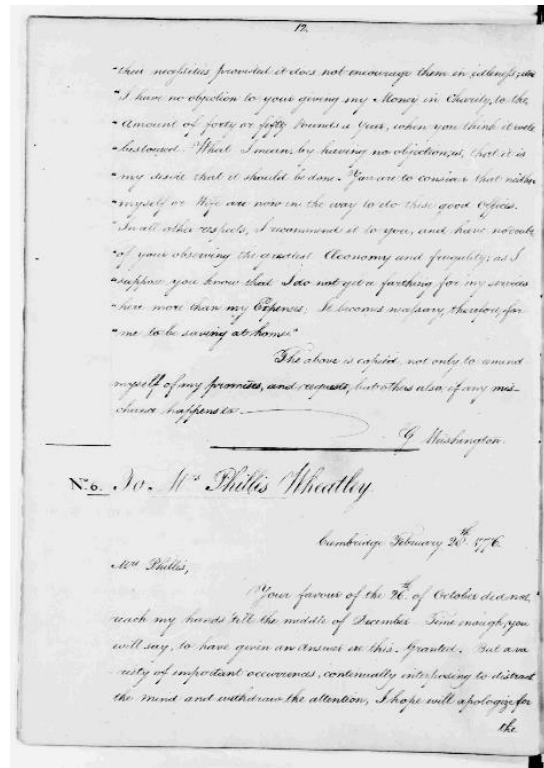 12.
"their necessities provided it does not encourage them in idleness; and
"I have no objection to your giving my Money in Charity, to the
"Amount of forty or fifty Pounds a Year, when you think it well
"bestowed. What I mean, by having no objection, is, that it is
"my desire that it should be done. You are to consider that neither
"myself or Wife are now in the way to do these good Offices.
"In all other respects, I recommend it to you, and have no doubt
"of your observing the greatest Œconomy and frugality; as I
"suppose you know that I do not get a farthing for my services
"here more than my Expenses; It becomes necessary, therefore, for
"me to be saving at home."
The above is copied, not only to
myself of my promises, and requests, but others also, if any mis-
chance happens to
G Washington.
No. 6. To. Mrs Phillis Wheatley
Cambridge February 28th. 1776.
Mrs Phillis,
Your favour of the 26th. of October did not
reach my hands 'till the middle of December. Time enough, you
will say, to have given an answer ere this. Granted. But a va-
riety of important occurrences, continually interposing to distract
the mind and withdraw the attention, I hope will apologize for
the